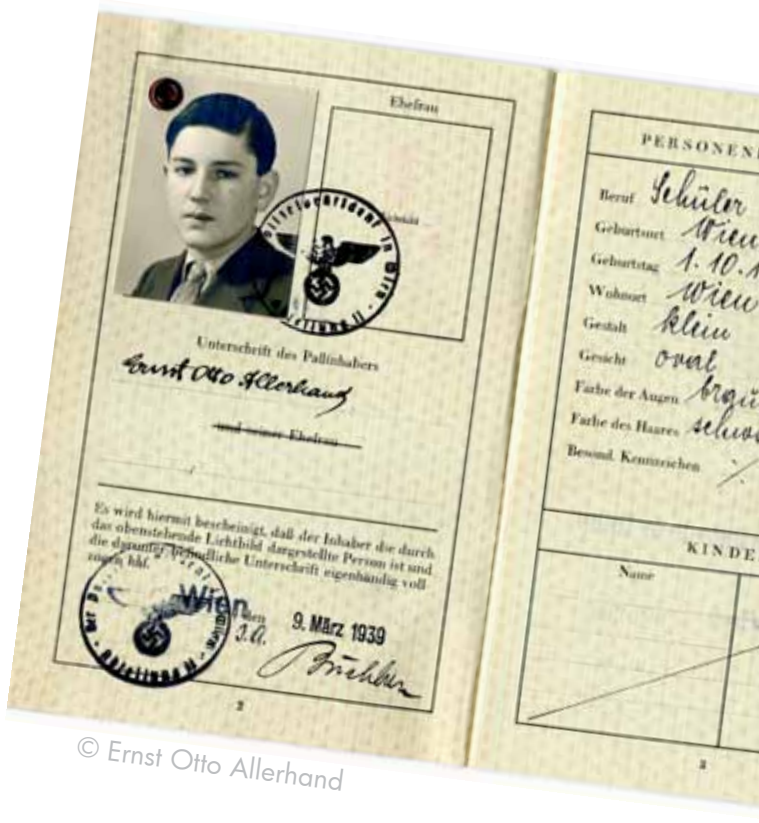 Ehefrau
Unterschrift des Paßinhabers
Ernst Otto Allerhand
und seiner Ehefrau
Es wird hiermit bescheinigt, daß der Inhaber die durch
das obenstehende Lichtbild dargestellte Person ist und
die darunter befindliche Unterschrift eigenhändig voll-
zogen hat.
Wien, den 9. März 1939
I.A.
2
PERSONEN
Beruf Schüler
Geburtsort Wien
Geburtstag 1.10.1
Wohnort Wien
Gestalt klein
Gesicht oval
Farbe der Augen brau
Farbe des Haares schwa
Besond. Kennzeichen
KINDE
Name
3
© Ernst Otto Allerhand